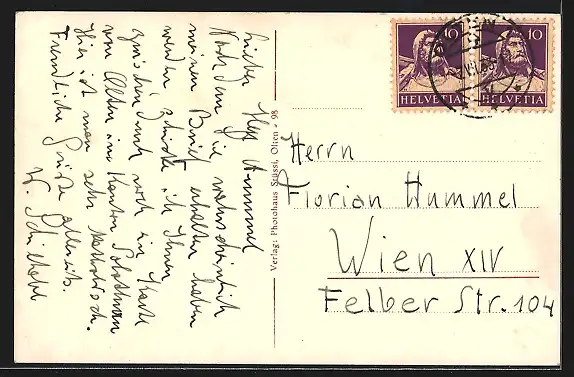 Lieber Herr Hummel
Nachdem Sie wahrscheinlich
meinen Brief erhalten haben
werden schicke ich Ihnen
zwischendurch noch eine Karte
von Olten im Kanton Solothurn
Hier ist man sehr
Freundliche Grüße allseits.
Verlag: Photohaus Stüssi, Olten - 98
10 10
HELVETIA HELVETIA
OLTEN
Herrn
Florian Hummel
Wien XIV
Felber Str. 104